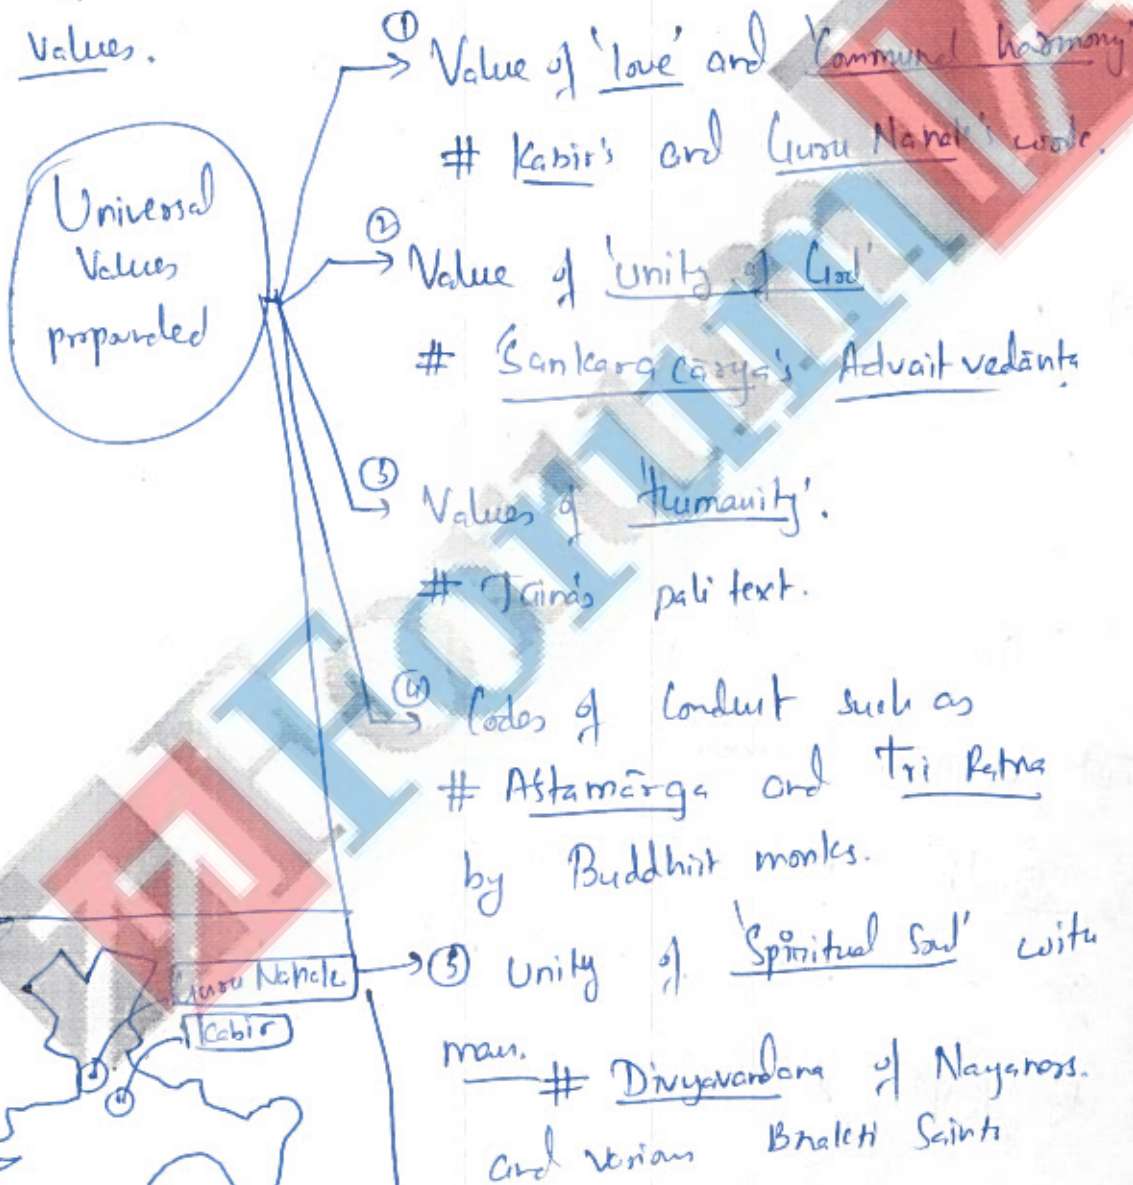 Values.
Universal
Values
propounded
① Value of 'love' and 'Communal harmony'
# Kabir's and Guru Nanak's work.
② Value of 'unity of God'
# Śankaracārya's Advait vedānta
③ Values of 'Humanity'.
# Jaina's pali text.
④ Codes of Conduct such as
# Aṣtamārga and Tri Ratna
by Buddhist monks.
⑤ Unity of 'Spiritual Soul' with
man.
# Divyavandana of Nayanars.
and various Bhakti Saints
Guru Nanak
Kabir
Forum